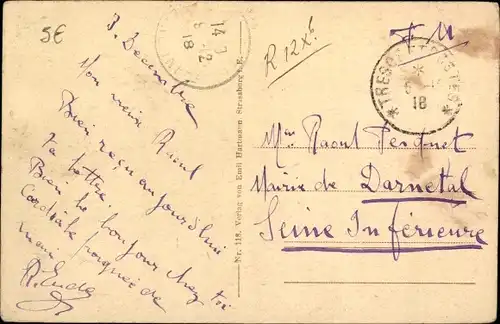 5€
3. Décembre
Mon vieux Raoul
Bien reçu aujourd'hui
ta lettre
Bien le bonjour chez toi
Cordiale poignée de
main
R.
14
12
18
Nr. 118. Verlag von Emil Hartmann, Strassburg i. E.
R 12 X 6
F.M
* TRESOR ET POSTES *
6
18
Mr Raoul
Mairie de Darnetal
Seine Inférieure